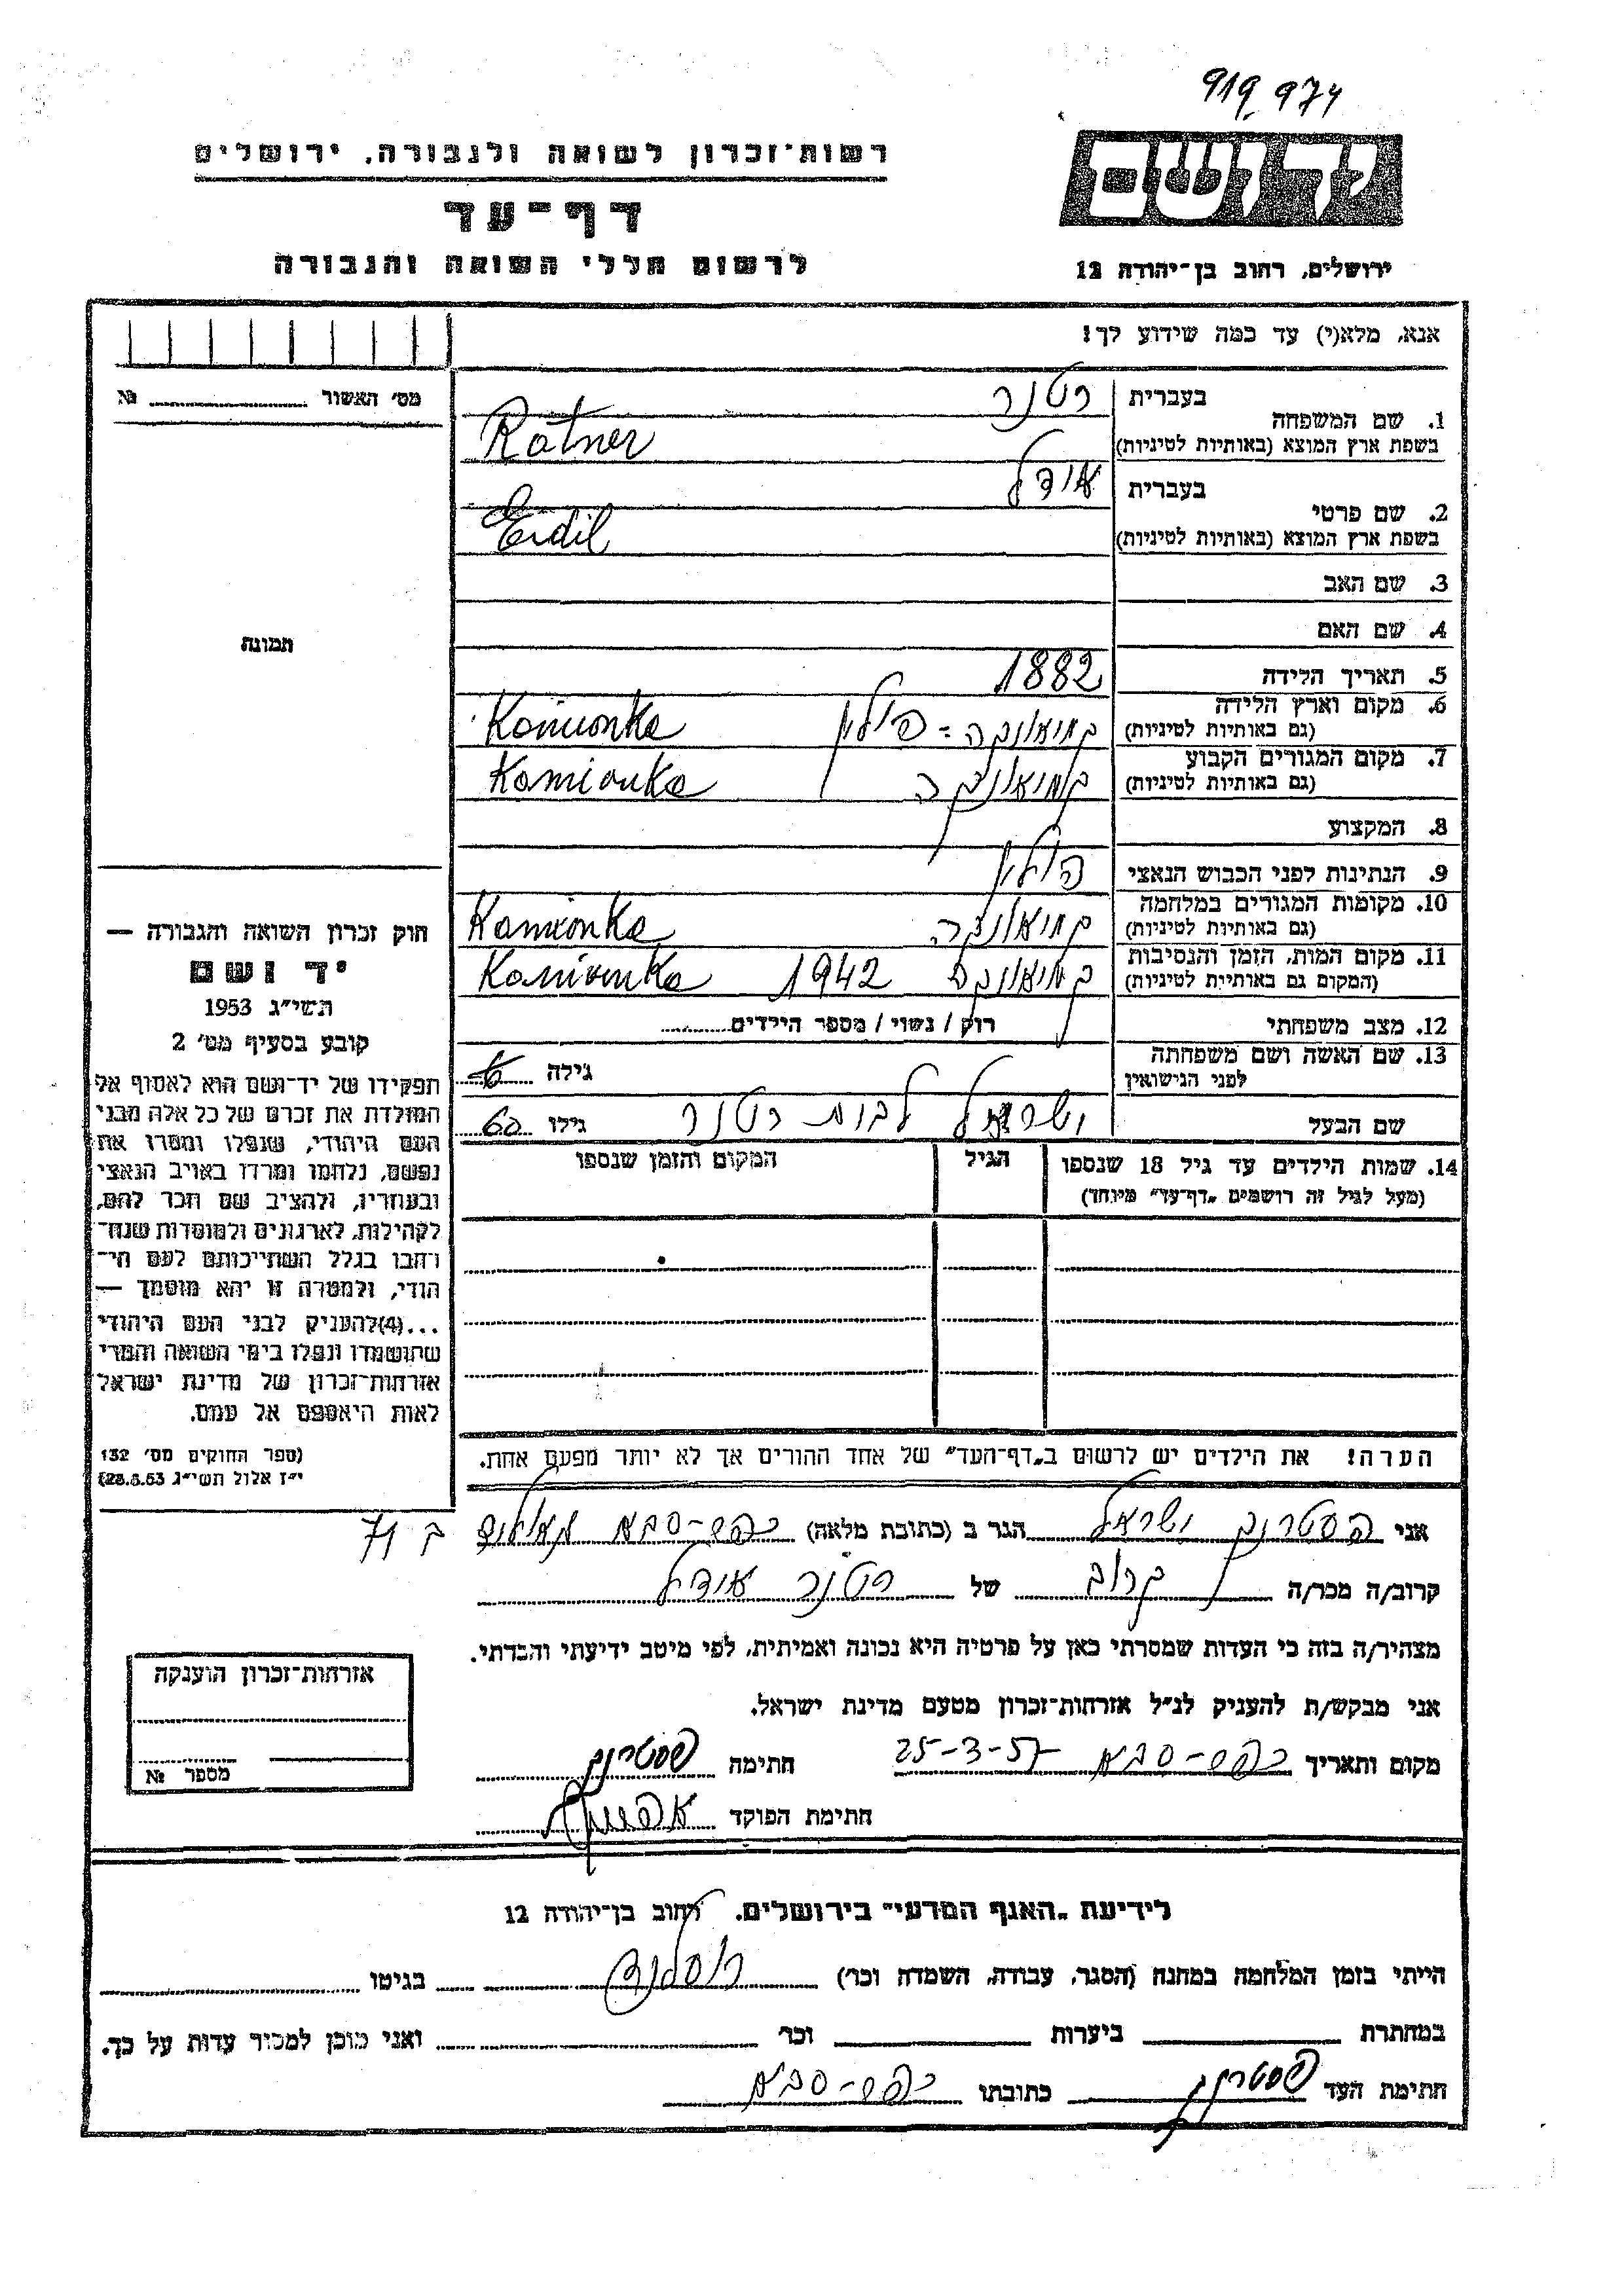 919974
רשות־זכרון לשואה ולגבורה, ירושלים
יד ושם
דף־עד
לרשום חללי השואה והגבורה
ירושלים, רחוב בן־יהודה 12
אנא, מלא(י) עד כמה שידוע לך!
מס׳ האשור № 
1. שם המשפחה בעברית רטנר
בשפת ארץ המוצא (באותיות לטיניות) Ratner
2. שם פרטי בעברית אידל
בשפת ארץ המוצא (באותיות לטיניות) Eidil
3. שם האב
4. שם האם
תמונה
5. תאריך הלידה 1882
6. מקום וארץ הלידה (גם באותיות לטיניות) קמיאונקה - פולין Kamionka
7. מקום המגורים הקבוע (גם באותיות לטיניות) קמיאונקה Kamionka
8. המקצוע
9. הנתינות לפני הכבוש הנאצי פולין
10. מקומות המגורים במלחמה (גם באותיות לטיניות) קמיאונקה Kamionka
11. מקום המות, הזמן והנסיבות (המקום גם באותיות לטיניות) קמיאונקה 1942 Kamionka
12. מצב משפחתי רוק / נשוי / מספר הילדים
13. שם האשה ושם משפחתה לפני הנישואין גילה
שם הבעל ישראל לבוש רטנר גילו 60
14. שמות הילדים עד גיל 18 שנספו הגיל המקום והזמן שנספו
(מעל לגיל זה רושמים „דף־עד״ מיוחד)
חוק זכרון השואה והגבורה —
יד ושם
תשי״ג 1953
קובע בסעיף מס׳ 2
תפקידו של יד־ושם הוא לאסוף אל
המולדת את זכרם של כל אלה מבני
העם היהודי, שנפלו ומסרו את
נפשם, נלחמו ומרדו באויב הנאצי
ובעוזריו, ולהציב שם וזכר להם,
לקהילות, לארגונים ולמוסדות שנח־
רבו בגלל השתייכותם לעם הי־
הודי, ולמטרה זו יהא מוסמך —
...(4)להעניק לבני העם היהודי
שהושמדו ונפלו בימי השואה והמרי
אזרחות־זכרון של מדינת ישראל
לאות היאספם אל עמם.
(ספר החוקים מס׳ 132
י״ז אלול תשי״ג 28.8.53)
הערה! את הילדים יש לרשום ב„דף־העד״ של אחד ההורים אך לא יותר מפעם אחת.
אני פסטרנק ישראל הגר ב (כתובת מלאה) כפר-סבא ב 71
קרוב/ה מכר/ה קרוב של רטנר אידל
מצהיר/ה בזה כי העדות שמסרתי כאן על פרטיה היא נכונה ואמיתית, לפי מיטב ידיעתי והכרתי.
אני מבקש/ת להעניק לנ״ל אזרחות־זכרון מטעם מדינת ישראל.
מקום ותאריך כפר-סבא 25-3-57 חתימה פסטרנק
חתימת הפוקד
אזרחות־זכרון הוענקה
מספר №
לידיעת „האגף המדעי״ בירושלים, רחוב בן־יהודה 12
הייתי בזמן המלחמה במחנה (הסגר, עבודה, השמדה וכו׳) רוסלנד בגיטו
במחתרת ביערות וכו׳ ואני מוכן למסור עדות על כך.
חתימת העד פסטרנק כתובתו כפר-סבא